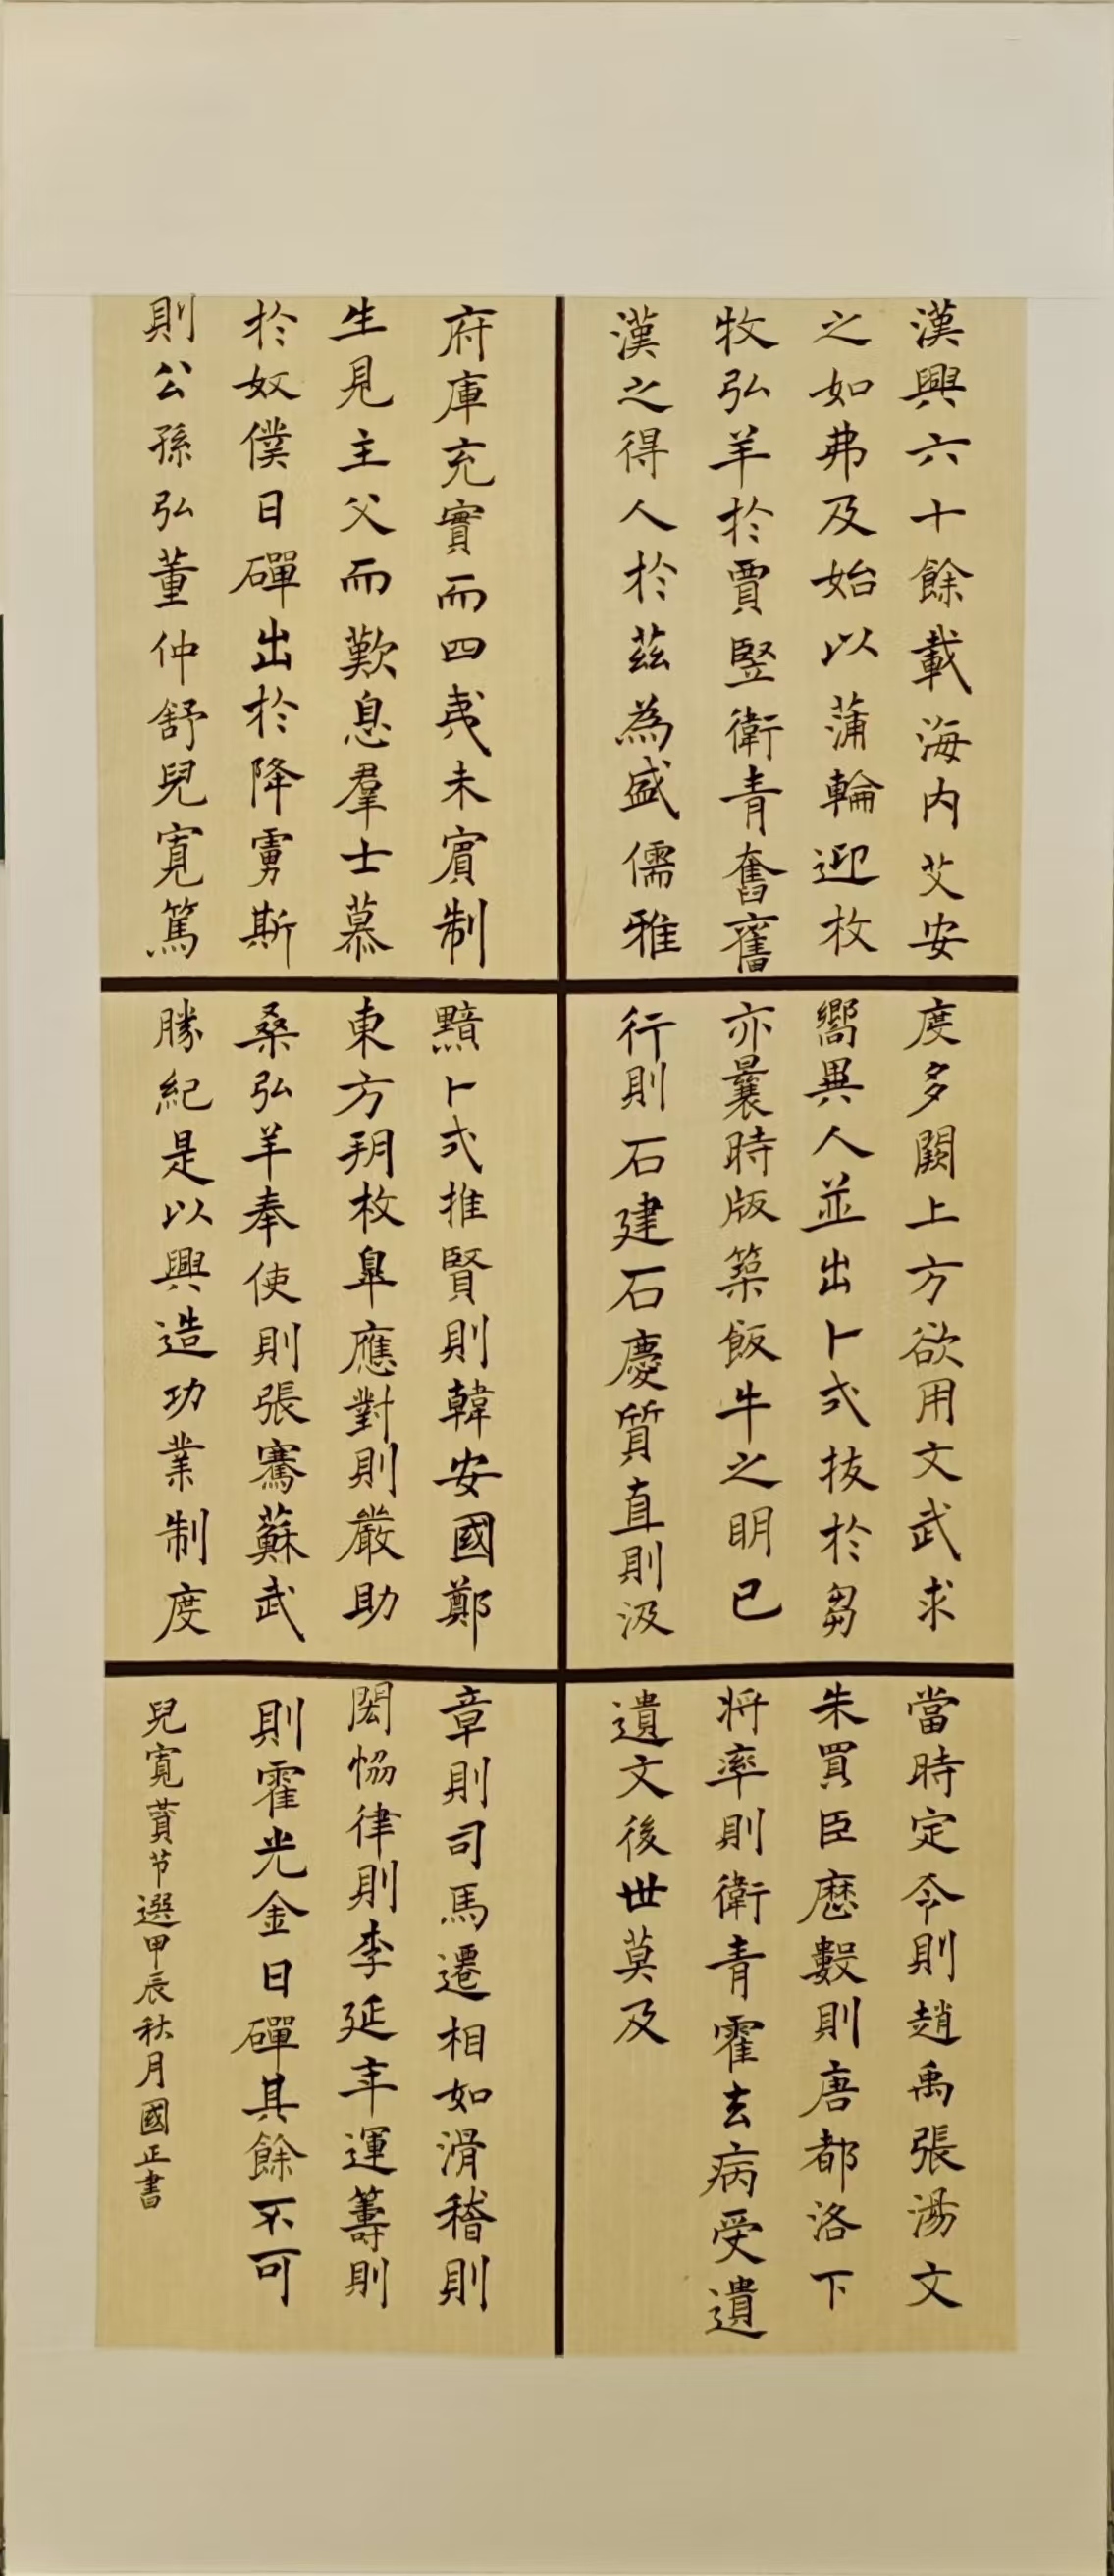 漢興六十餘載海内艾安
府庫充實而四夷未賓制
度多闕上方欲用文武求
之如弗及始以蒲輪迎枚
生見主父而歎息羣士慕
嚮異人並出卜式拔於芻
牧弘羊於賈豎衛青奮舊
於奴僕日磾出於降虜斯
亦曩時版築飯牛之明已
漢之得人於茲為盛儒雅
則公孫弘董仲舒兒寬篤
行則石建石慶質直則汲
黯卜式推賢則韓安國鄭
當時定令則趙禹張湯文
章則司馬遷相如滑稽則
東方朔枚皐應對則嚴助
朱買臣歷數則唐都洛下
閎恊律則李延年運籌則
桑弘羊奉使則張騫蘇武
将率則衛青霍去病受遺
則霍光金日磾其餘不可
勝紀是以興造功業制度
遺文後世莫及
兒寬贊节選甲辰秋月國正書